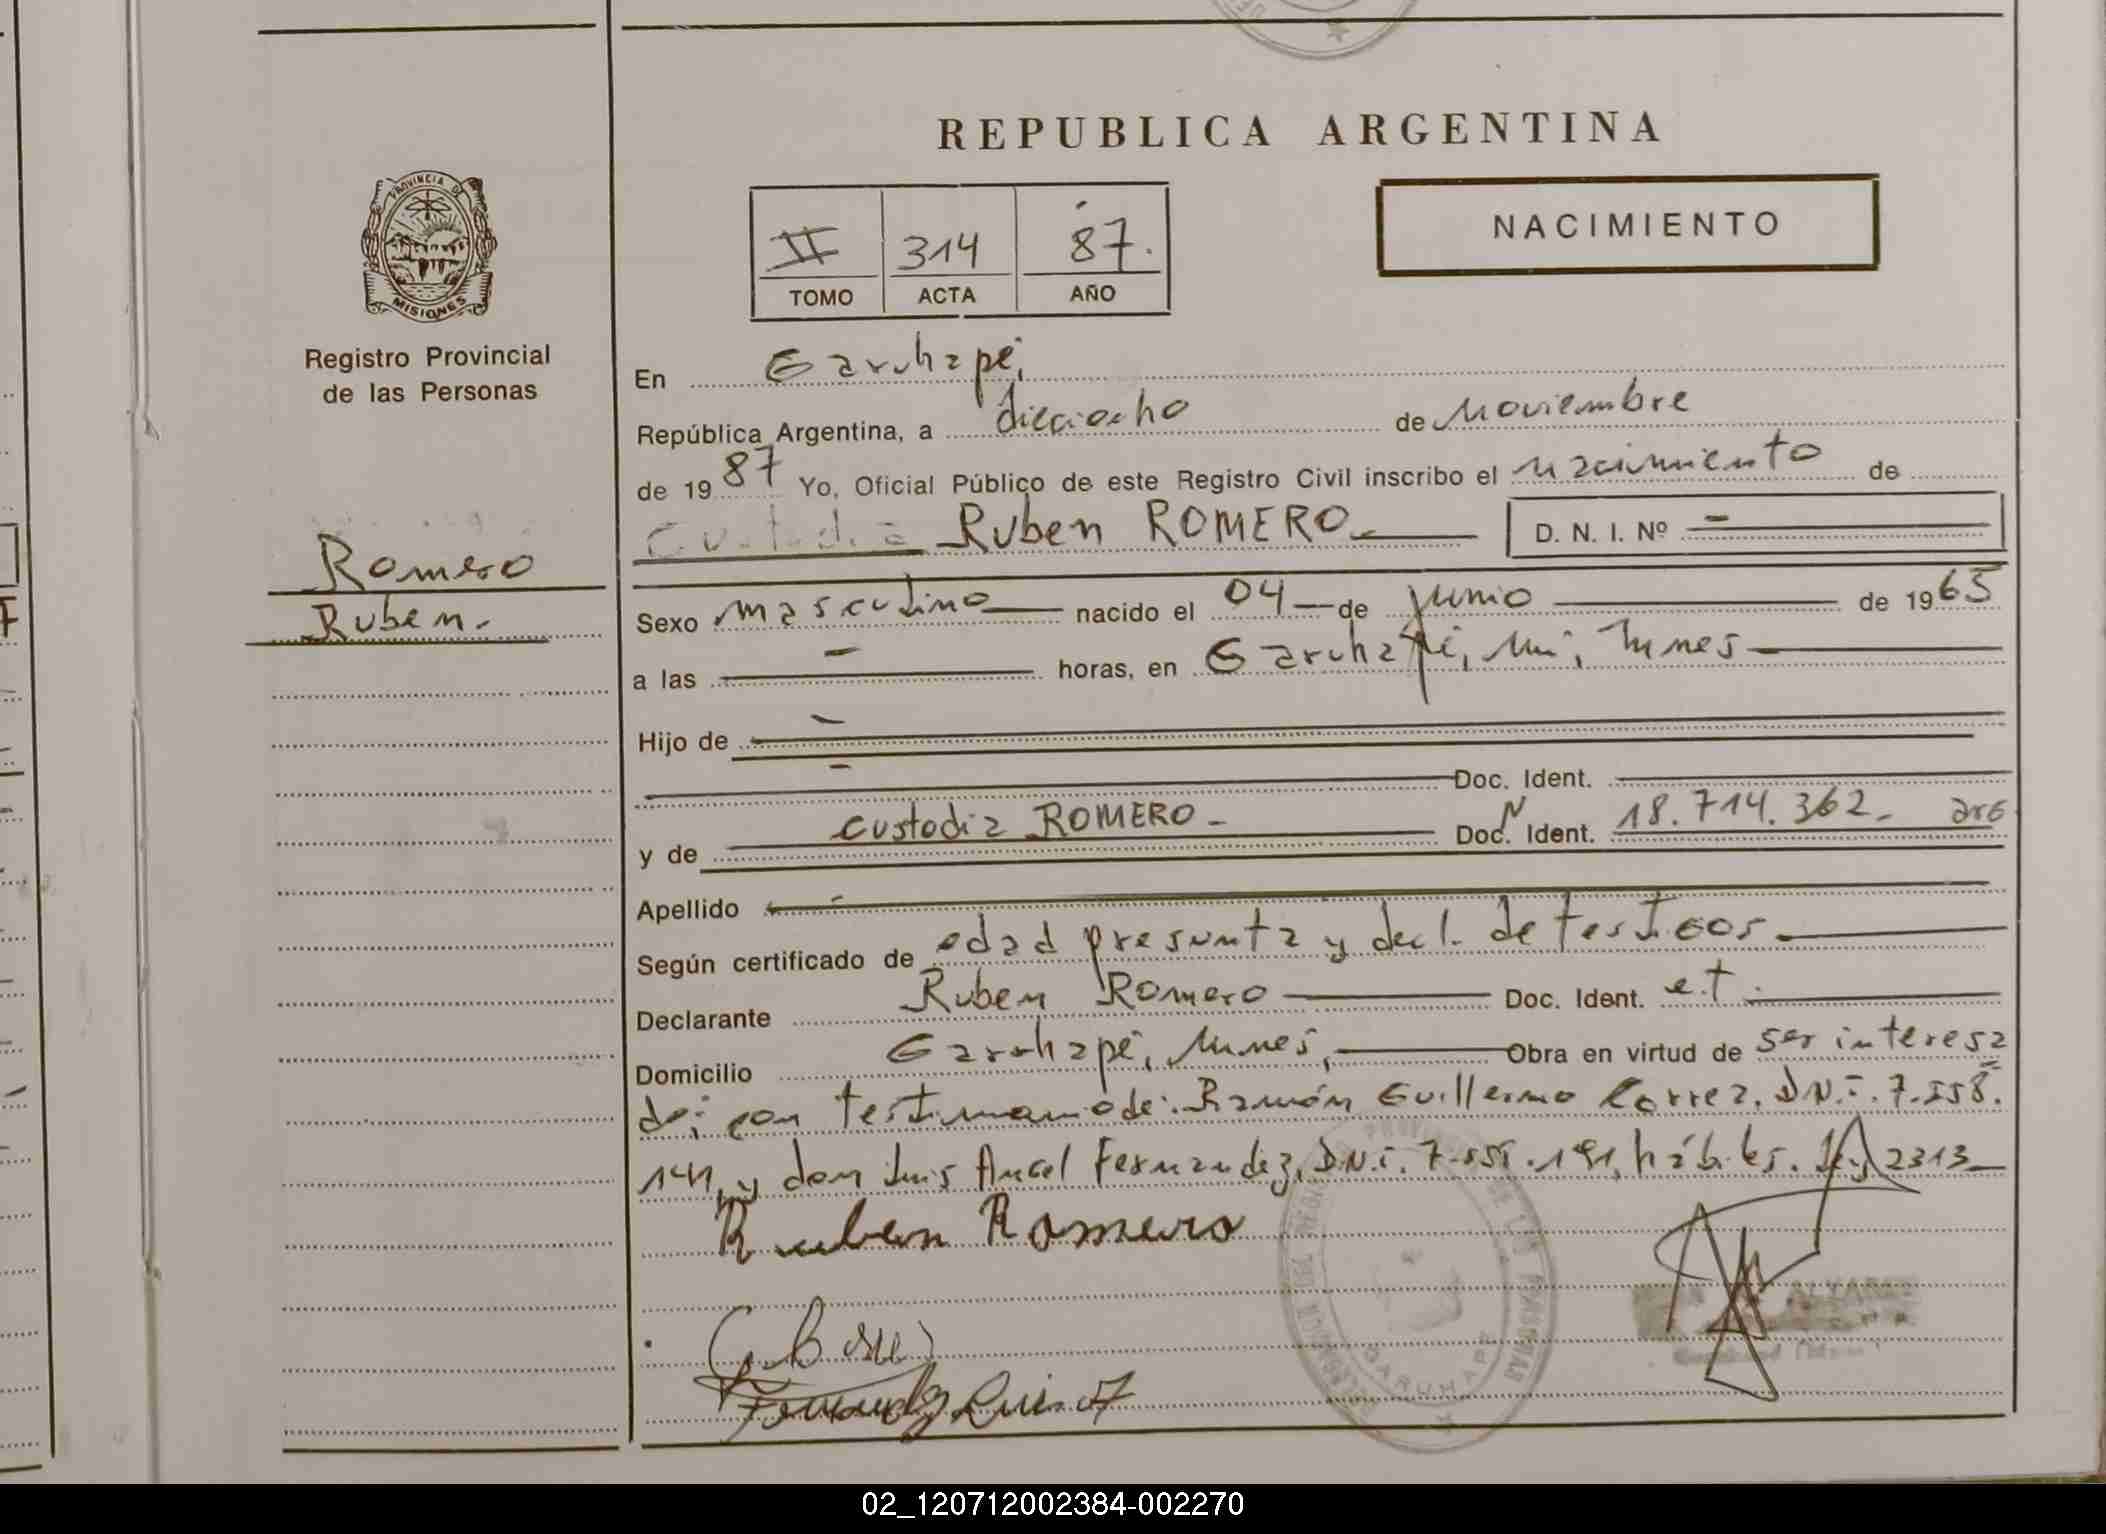 REPUBLICA ARGENTINA
PROVINCIA DE
MISIONES
Registro Provincial
de las Personas
II 314 87.
TOMO ACTA AÑO
NACIMIENTO
En Garuhapé,
República Argentina, a dieciocho de Noviembre
de 1987 Yo, Oficial Público de este Registro Civil inscribo el nacimiento de
Ruben ROMERO D. N. I. Nº -
Romero
Ruben.
Sexo masculino nacido el 04 de junio de 1965
a las - horas, en Garuhapé,
Hijo de -
- Doc. Ident.
y de custodia ROMERO - Doc. Ident. 18.714.362. arg
Apellido -
Según certificado de edad presunta y decl. de testigos
Declarante Ruben Romero Doc. Ident. e.t.
Domicilio Garuhapé, Obra en virtud de ser interesa
do; con testimonio de: Ramón Guillermo Correa, D.N.I. 7.558.
141, y don Luis Angel Fernandez, D.N.I. hábiles. Ley 2313
Ruben Romero
Fernandez Luis A
GARUHAPE
ALVAREZ
02_120712002384-002270